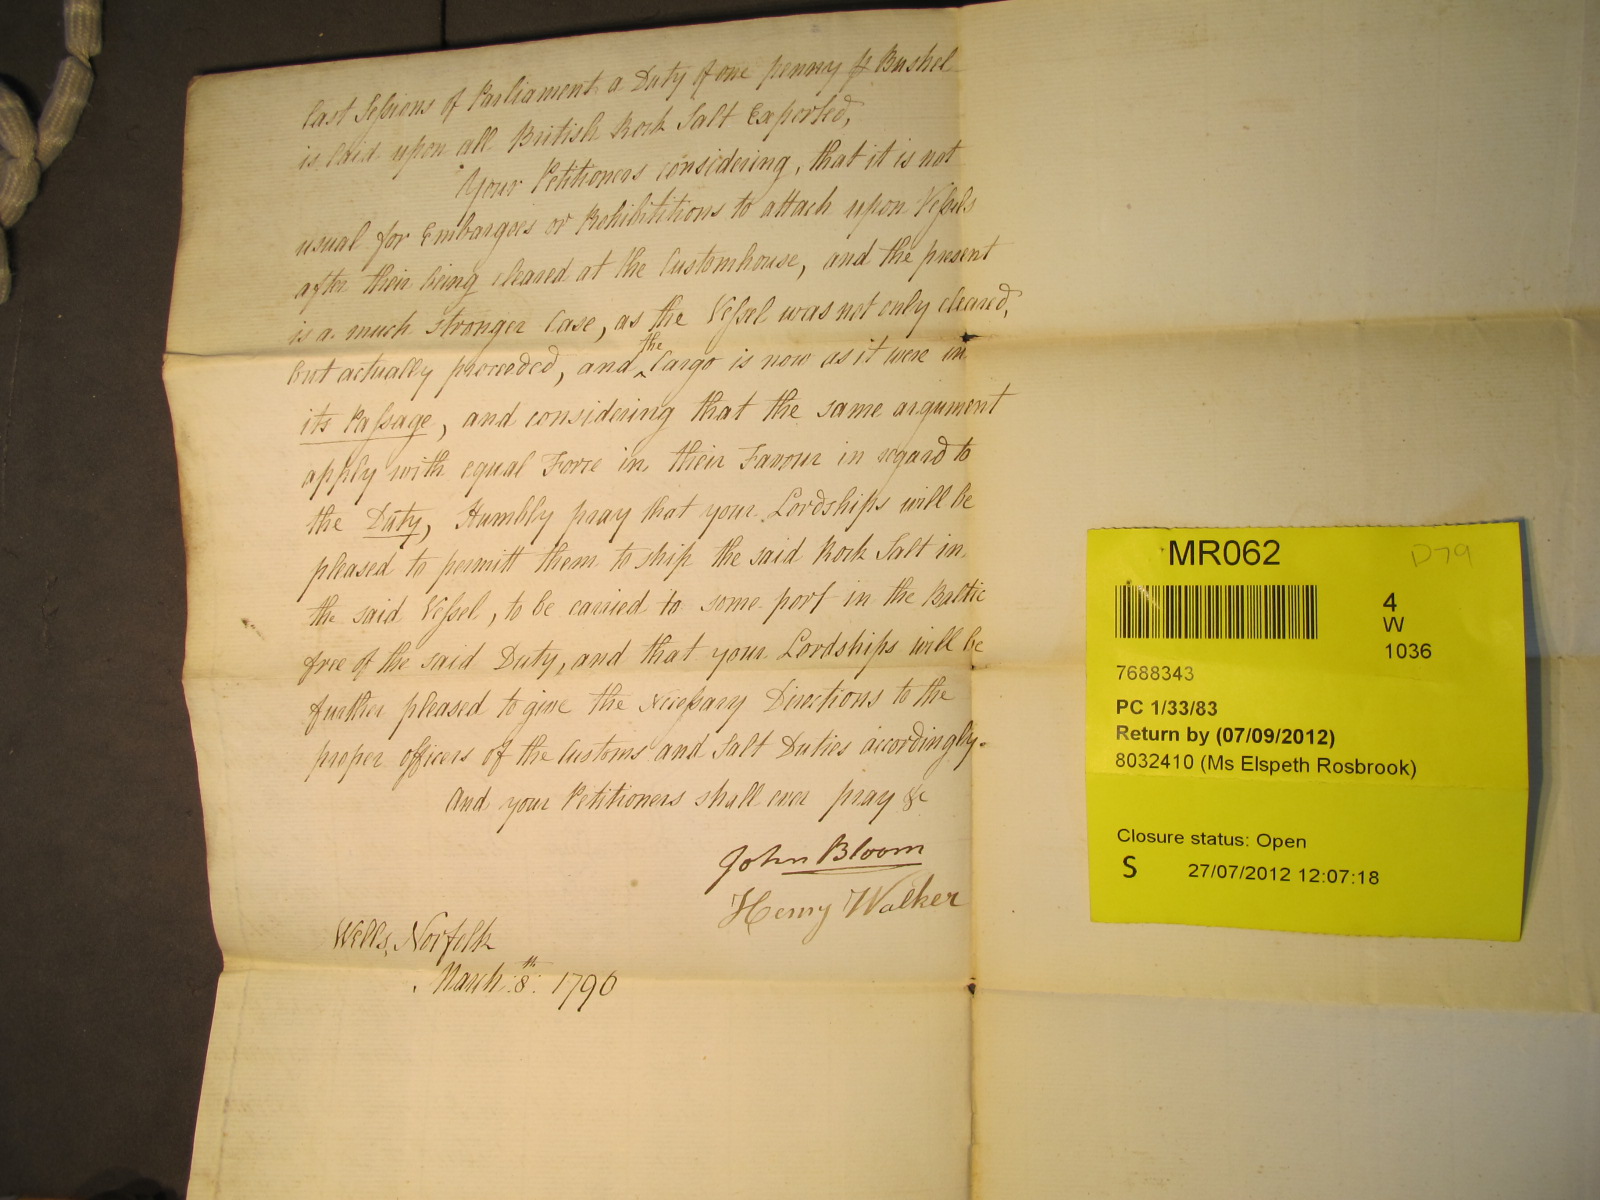 last Sessions of Parliament a Duty of one penny ⅌ Bushel
is laid upon all British Rock Salt Exported,
Your Petitioners considering, that it is not
usual for Embargoes or Prohibititions to attach upon Vessels
after their being cleared at the Customhouse, and the present
is a much stronger Case, as the Vessel was not only cleared,
but actually proceeded, and the Cargo is now as it were in
its Passage, and considering that the same argument
apply with equal Force in their Favour in regard to
the Duty, Humbly pray that your Lordships will be
pleased to permitt them to ship the said Rock Salt in
the said Vessel, to be carried to some port in the Baltic
free of the said Duty, and that your Lordships will be
further pleased to give the Necessary Directions to the
proper officers of the Customs and Salt Duties accordingly.
And your Petitioners shall ever pray &c
John Bloom
Henry Walker
Wells, Norfolk
March 8th 1796
MR062
D79
4
W
1036
7688343
PC 1/33/83
Return by (07/09/2012)
8032410 (Ms Elspeth Rosbrook)
Closure status: Open
S 27/07/2012 12:07:18